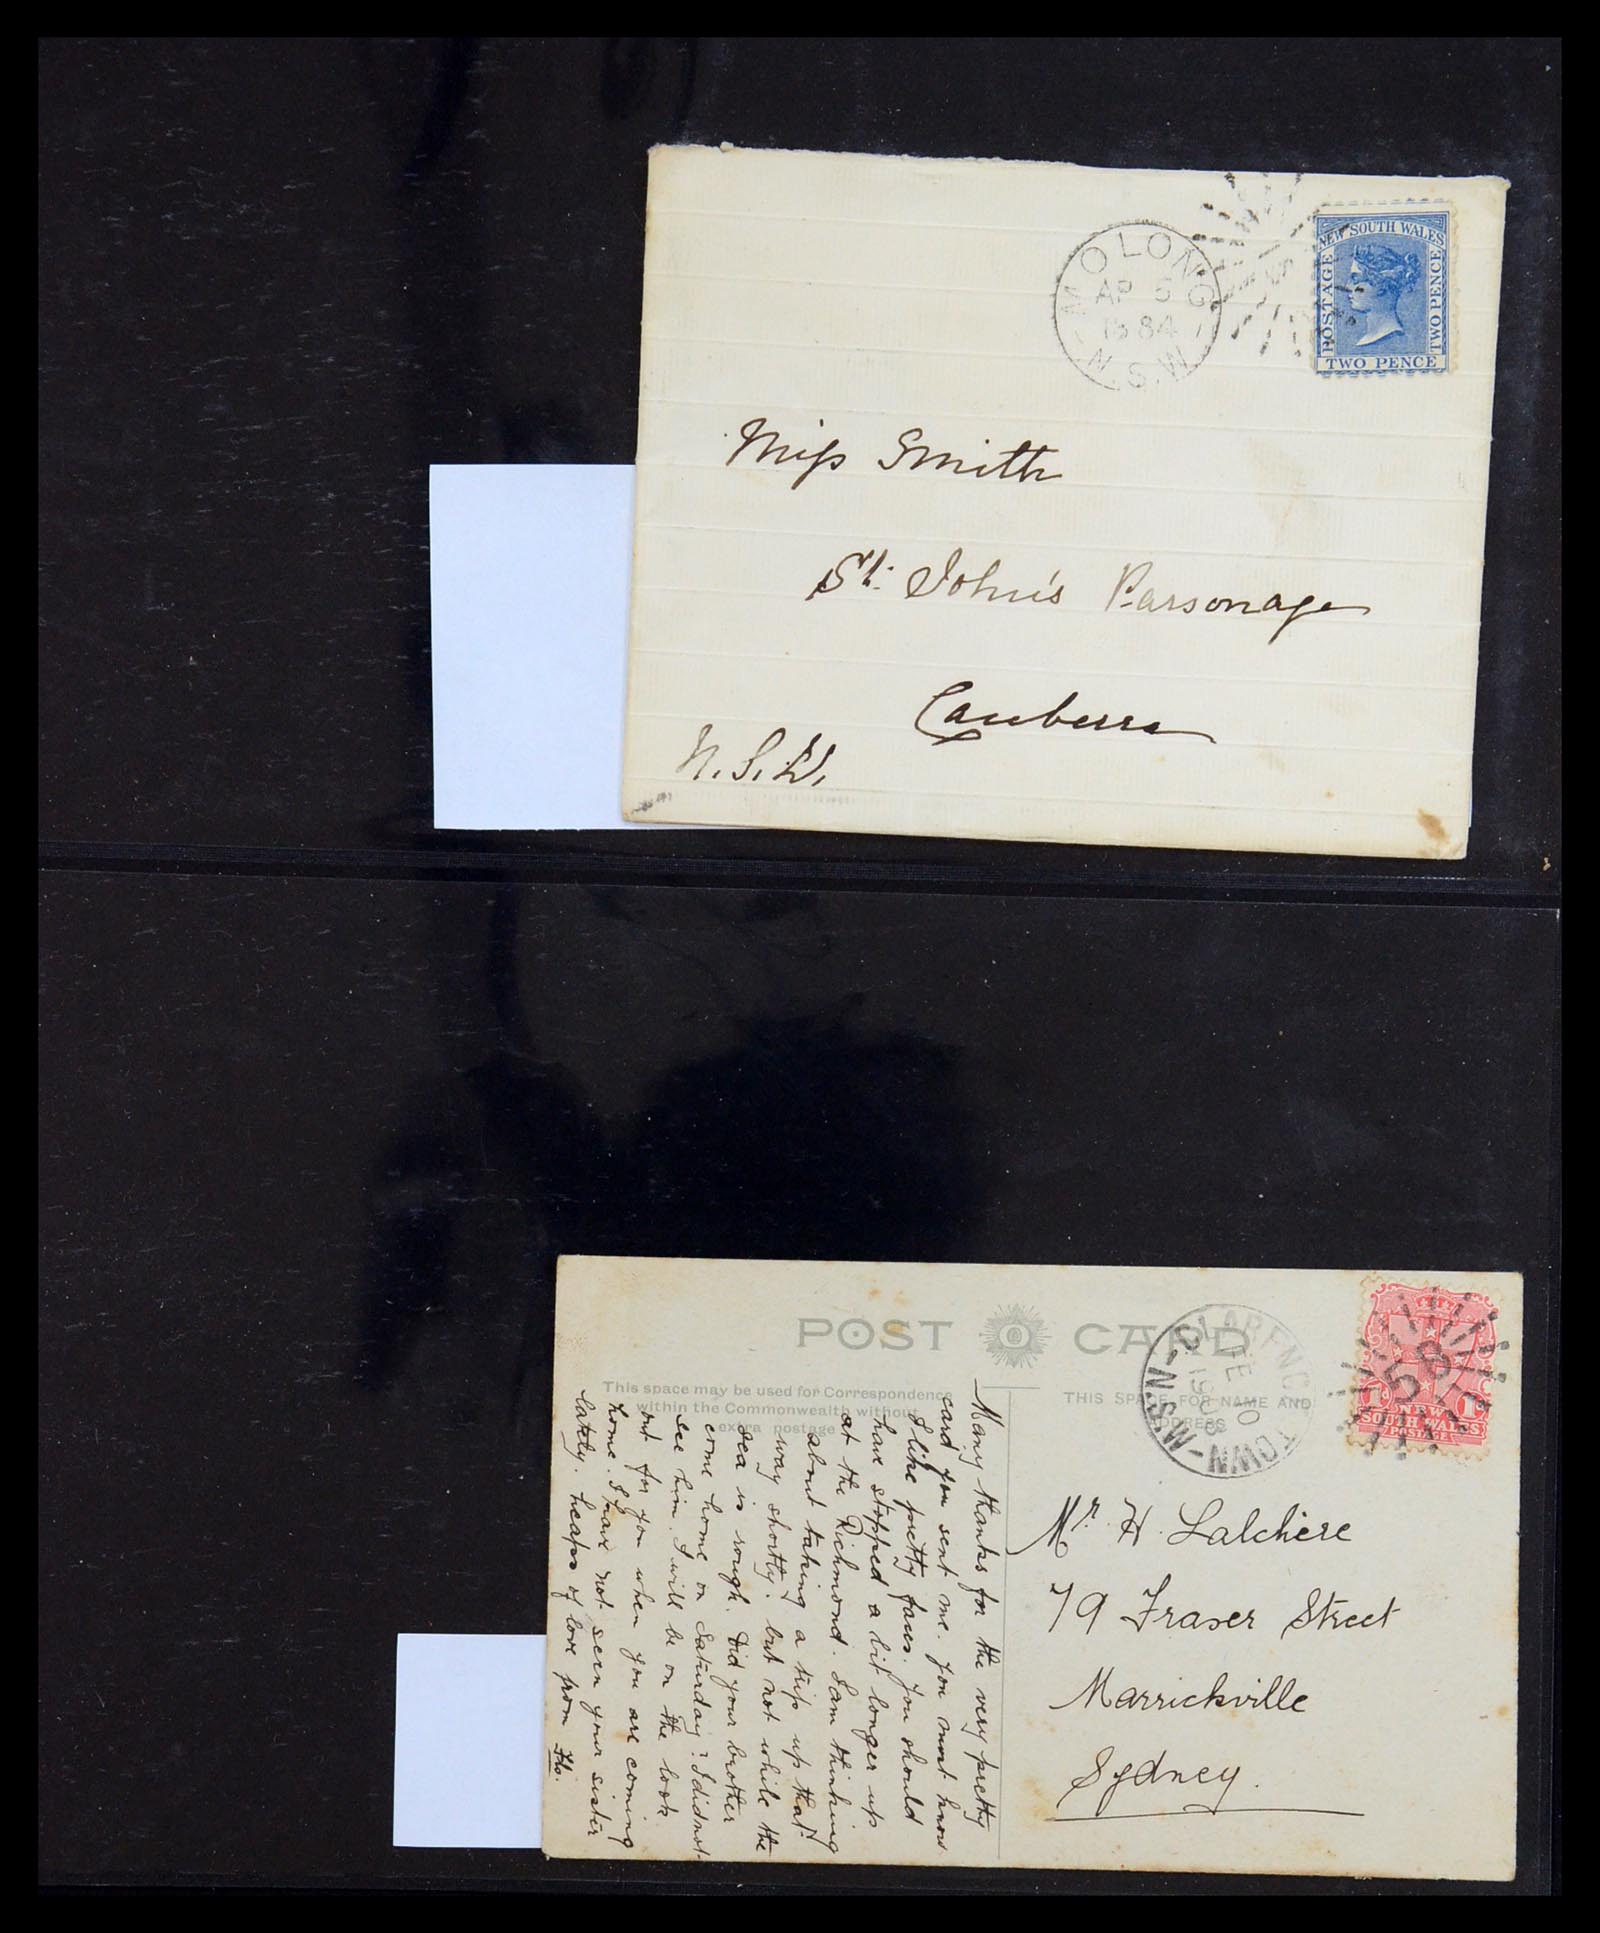 MOLONG
AP 5
1884
N.S.W
NEW SOUTH WALES
POSTAGE
TWO PENCE
TWO PENCE
Miss Smith
St. John's Parsonage
Canberra
N.S.W.
POST CARD
This space may be used for Correspondence
within the Commonwealth without
extra postage
THIS SPACE FOR NAME AND
ADDRESS
CLARENCE TOWN - N.S.W -
10
58
1d
NEW
SOUTH WALES
POSTAGE
Many thanks for the very pretty
card you sent me. You must know
I like pretty faces. You should
have stopped a bit longer up
at the Richmond. I am thinking
about taking a trip up that
way shortly. but not while the
sea is rough. Did your brother
come home on Saturday? I did not
see him. I will be on the look
out for you when you are coming
home. I have not seen your sister
lately. heaps of love from
Mr. H. Lalchere
79 Fraser Street
Marrickville
Sydney.